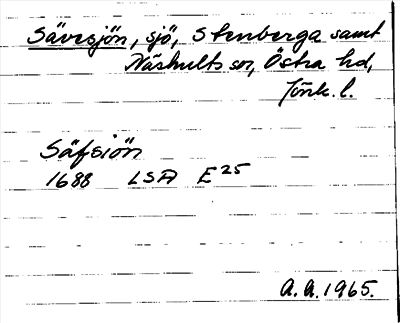 Sävesjön, sjö, Stenberga samt
Näshults snr, Östra hd,
Jönk. l.
Säfsiön
1688 LSA E25
A.A. 1965.